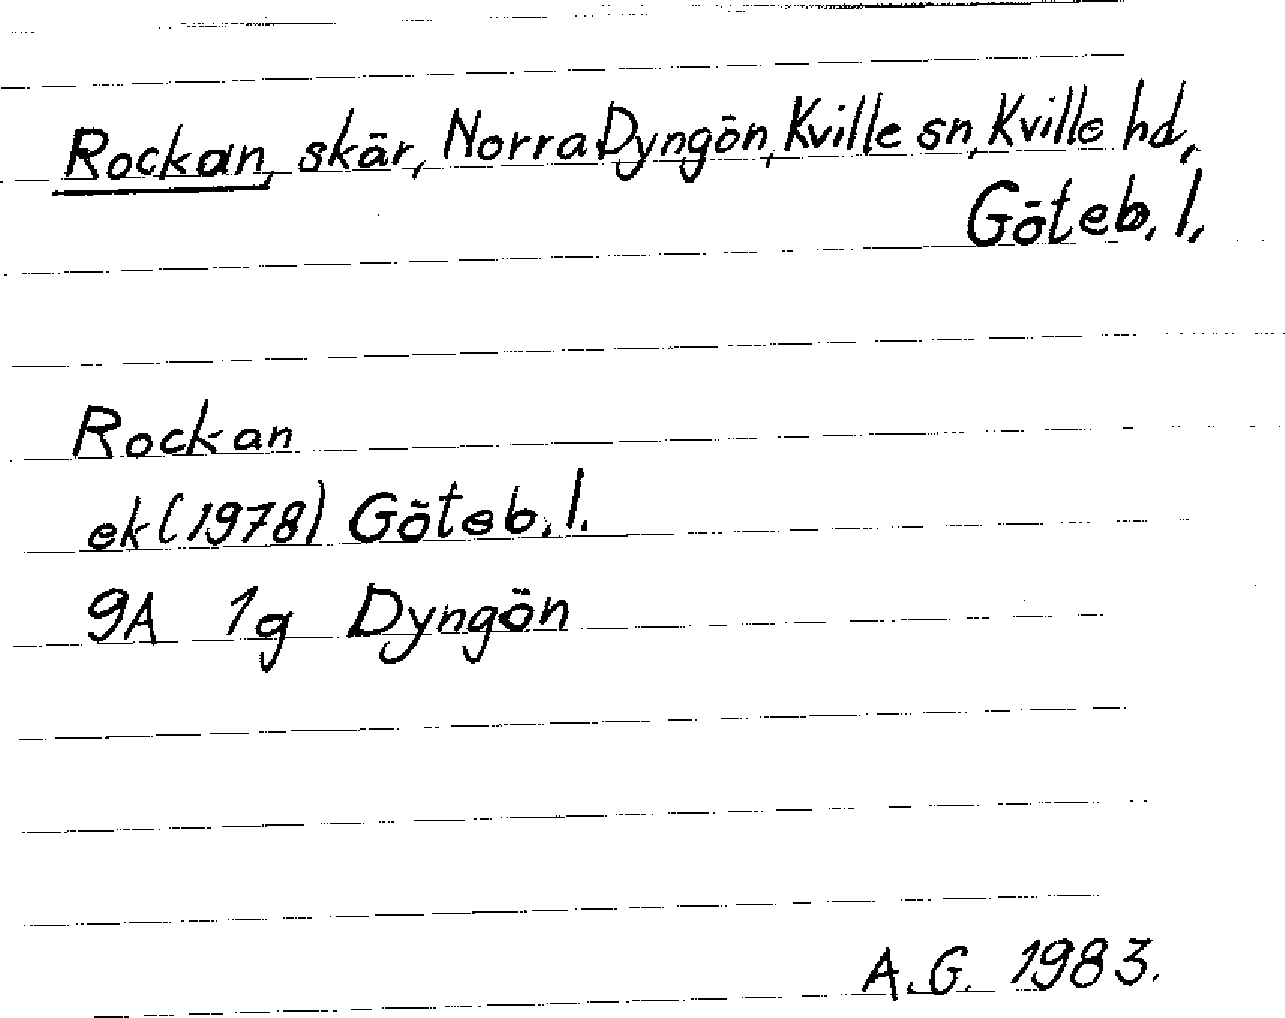 Rockan, skär, Norra Dyngön, Kville sn, Kville hd,
Göteb. l.
Rockan
ek (1978) Göteb. l.
9A 1g Dyngön
A.G. 1983.